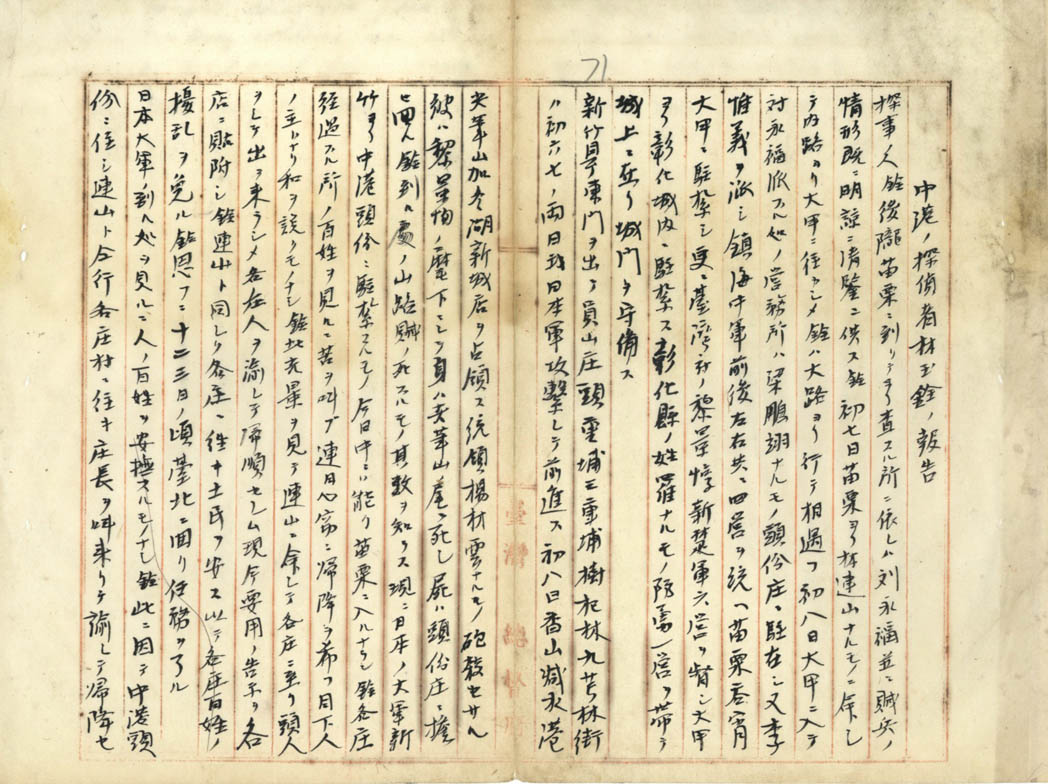 71
中港ノ探偵者林玉銓ノ報告
探事人銓後壠苗栗ニ到リテヨリ査スル所ニ依レハ刘永福並ニ賊兵ノ
情形既ニ明諒ニ清鑒ニ供ス銓初七日苗栗ヨリ林連山ナルモノニ命シ
テ内路ヨリ大甲ニ往カシメ銓ハ大路ヨリ行テ相遇フ初八日大甲ニ入テ
対永福派スル処ノ営務所ハ梁鵬翊ナルモノ頭份庄ニ駐在シ又李
惟義ヲ派シ鎮海中軍前後左右共ニ四営ヲ統ヘ苗栗呑霄
大甲ニ駐紮シ更ニ臺湾府ノ黎景惇新楚軍六営ヲ督シ大甲
ヨリ彰化城内ニ駐紮ス彰化縣ノ姓羅ナルモノ防勇一営ヲ帯テ
城上ニ在リ城門ヲ守備ス
新竹县東門ヲ出テ員山庄頭重埔二重埔樹杞林九芎林街
ハ初六七ノ両日我日本軍攻撃シテ前進ス初八日香山鹹水港
尖筆山加冬湖新城店ヲ占領ス統領楊材雲ナルモノ砲殺セラル
彼ハ黎景惇ノ麾下ニシテ身ハ尖筆山尾ニ死シ屍ハ頭份庄ニ擔
ヒ回ル銓到ル處ノ山路賊ノ死スルモノ其数ヲ知ラス現ニ日本ノ大軍新
竹ヨリ中港頭份ニ駐紮スルモノ今日中ニハ能ク苗栗ニ入ルナラン銓各庄
経過スル所ノ百姓ヲ見ルニ苦ヲ叫ブ連日心常ニ帰降ヲ希フ目下人
ノ主トナリ和ヲ説クモノナシ銓此光景ヲ見テ連山ニ命シテ各庄ニ至リ頭人
ヲシテ出テ来ラシメ各在人ヲ諭シテ帰順セシム現今要用ノ告示ヲ各
店ニ貼附シ銓連山ト同シク各庄ニ往キ土民ヲ安ス以テ各庄百姓ノ
擾乱ヲ免ル銓思フニ十二三日ノ頃臺北ニ回リ任務ヲ了ル
日本大軍ノ到ル処ヲ見ルニ人ノ百姓ヲ安撫スルモノナシ銓此ニ因テ中港頭
份ニ住シ連山ト仝行各庄村ニ往キ庄長ヲ叫来リテ諭シテ帰降セ
臺灣總督府